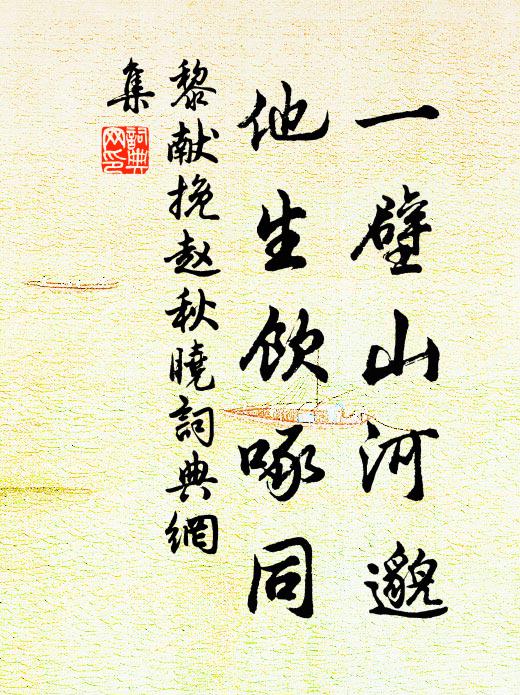 一壁山河邈
他生饮啄同
黎献挽赵秋曉詞典網
集
詞典
网印